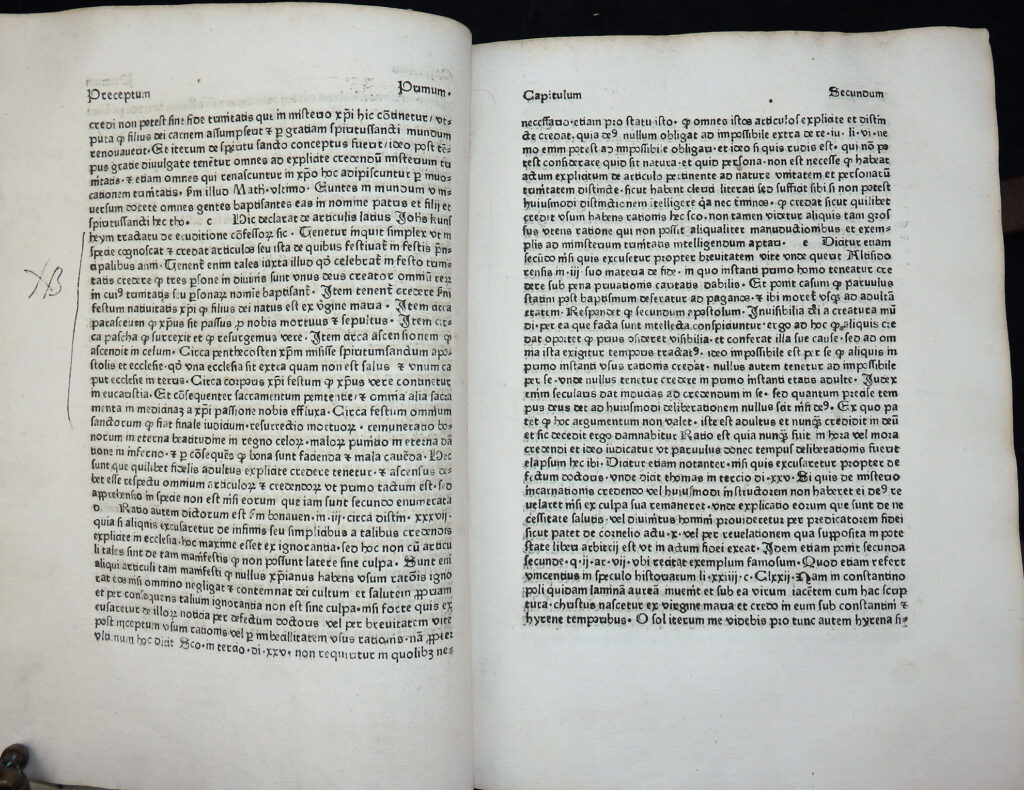 Preceptum Primum·
credi non potest sine fide trinitatis que in misterio xp̄i hic cōtinetur/ vt-
puta ꝙ filius dei carnem assumpserit ⁊ ꝑ gratiam spiritussancti mundum
renouauerit· Et iterum de spiritu sancto conceptus fuerit/ ideo post tē-
pus gratie diuulgate tenētur omnes ad explicite credendū misterium tri
nitatis· ⁊ etiam omnes qui renascuntur in xp̄o hoc adipiscuntur ꝑ inuo-
cationem trinitatis· s̄m illud Math· vltimo· Euntes in mundum vni-
uersum docete omnes gentes baptisantes eas in nomine patris et filij et
spiritussancti hec tho· c Hic declarat de articulis latius Johīs kuns
heym tractatu de eruditione cōfessoꝝ sic· Tenetur inquit simplex vt in
specie cognoscat ⁊ credat articulos seu ista de quibus festiuat̄ in festis p̄n-
cipalibus anni· Tenent̄ enim tales iuxta illud qd̄ celebrat̄ in festo trini-
tatis credere ꝙ tres ꝑsone in diuinis sunt vnus deus creator omniū reꝝ
in cui⁹ trinitatis seu ꝑsonaꝝ nomīe baptisant̄· Item tenent̄ credere s̄m
festum natiuitatis xp̄i ꝙ filius dei natus est ex v̄gine maria· Item circa
parasceuen ꝙ xp̄us sit passus ꝓ nobis mortuus ⁊ sepultus· Item cir-
ca pascha ꝙ surrexit et ꝙ resurgemus vere· Item circa ascensionem ꝙ
ascendit in celum· Circa penthecosten xp̄m misisse spiritumsanctum apo-
stolis et ecclesie· qd̄ vna ecclesia sit extra quam non est salus ⁊ vnum ca
put ecclesie in terris· Circa corpus xp̄i festum ꝙ xp̄us vere continetur
in eucaristia· Et cōsequenter sacramentum penitētie/ ⁊ om̄ia alia sacra
menta in medicinaꝫ a xp̄i passione nobis effluxa· Circa festum omnium
sanctorum ꝙ fiat finale iudicium· resurrectio mortuoꝝ· remuneratio bo-
norum in eterna beatitudine in regno celoꝝ· maloꝝ punitio in eterna dā
tione in inferno· ⁊ ꝑ cōsequēs ꝙ bona sunt facienda ⁊ mala cauēda· Hec
sunt que quilibet fidelis adultus explicite credere tenetur· ⁊ ascensus de-
bet esse respectu omnium articuloꝝ ⁊ credendoꝝ vt primo tactum est· sed
apprehensio in specie non est nisi eorum que iam sunt secundo enumerata
d· Ratio autem dictorum est s̄m bonauen·in·iij· circa distin· xxxvij·
quia si aliquis excusaretur de infimis seu simplicibus a talibus credendis
explicite in ecclesia· hoc maxime esset ex ignorantia· sed hoc non cū articu
li tales sint de tam manifestis ꝙ non possunt latere sine culpa· Sunt enī
aliqui articuli tam manifesti ꝙ nullus xp̄ianus habens vsum ratōnis igno
rat eos nisi omnino negligat ⁊ contemnat dei cultum et salutem ꝓpriam
et per consequens talium ignorantia non est sine culpa· nisi forte quis ex
cusaretur de illoꝝ noticia per defectum doctoris vel per breuitatem vite
post inceptum vsum rationis vel ꝑ imbecillitatem vsus rationis· nā ꝓpter
vltimum hoc dicit Sco·in tercio·di·xxv· non requiritur in quolibꝫ ne-
Capitulum Secundum
necessario· etiam pro statu isto· ꝙ omnes istos articulos explicite et distin
cte credat· quia de⁹ nullum obligat ad impossibile extra de re·iu· li·vi·ne
mo enim potest ad impossibile obligari· et ideo si quis rudis est· qui nō po
test considerare quid sit natura· et quid persona· non est necesse ꝙ habeat
actum explicitum de articulo pertinente ad nature vnitatem et personarū
trinitatem distincte· sicut habent clerici literati sed sufficit sibi si non potest
huiusmodi distinctionem ītelligere q̄a nec t̄minos· ꝙ credat sicut quilibet
credit vsum habens rationis hec sco· non tamen videtur aliquis tam gros
sus vtens ratione qui non possit aliqualiter manuductionibus et exem-
plis ad misterium trinitatis intelligendum aptari· e Dicitur etiam
secūdo nisi quis excusetur propter breuitatem vite vnde querit Altisido
rensis in·iij· suo materia de fide· in quo instanti primo homo teneatur cre
dere sub pena priuationis caritatis dabilis· Et ponit casum ꝙ paruulus
statim post baptismum deferatur ad paganos· ⁊ ibi moret̄ vsꝙ ad adultā
etatem· Respondet ꝙ secundum apostolum· Inuisibilia dei a creatura mū
di·per ea que facta sunt intellecta conspiciuntur· ergo ad hoc ꝙ aliquis cre
dat oportet ꝙ prius cōsideret visibilia· et conferat illa sue cause· sed ad om
nia ista exigitur temporis tractat⁹· ideo impossibile est per se ꝙ aliquis in
primo instanti vsus rationis credat· nullus autem tenetur ad impossibile
per se· vnde nullus tenetur credere in primo instanti etatis adulte· Judex
enim secularis dat inducias ad credendum in se· sed quantum precise tem
pus deus det ad huiusmodi deliberationem nullus scit nisi de⁹· Ex quo pa
tet ꝙ hoc argumentum non valet· iste est adultus et nunqꝫ credidit in deū
et sic decedit ergo damnabitur Ratio est quia nunqꝫ fuit in hora vel mora
credendi et ideo iudicatur vt paruulus donec tempus deliberationis fuerit
elapsum hec ibi· Dicitur etiam notanter· nisi quis excusaretur propter de
fectum doctoris· vnde dicit thomas in tercio di·xxv· Si quis de misterio
incarnationis credendo vel huiusmodi instructorem non haberet ei de⁹ re
uelaret nisi ex culpa sua remaneret· vnde explicatio eorum que sunt de ne
cessitate salutis· vel diuinitus homini prouideretur per predicatorem fidei
sicut patet de cornelio actu·x·vel per reuelationem qua supposita in pote
state liberi arbitrij est vt in actum fidei exeat· Idem etiam ponit secunda
secunde·q·ij·ar·vij·vbi recitat exemplum famosum· Quod etiam refert
vincentius in speculo historiarum li·xxiiij·c·Clxxij· Nam in constantino
poli quidam laminā aureā inuenit et sub ea virum iacētem cum hac scrip
tura· christus nascetur ex virgine maria et credo in eum sub constantini ⁊
hyrene temporibus· O sol iterum me videbis pro tunc autem hyrena fi-